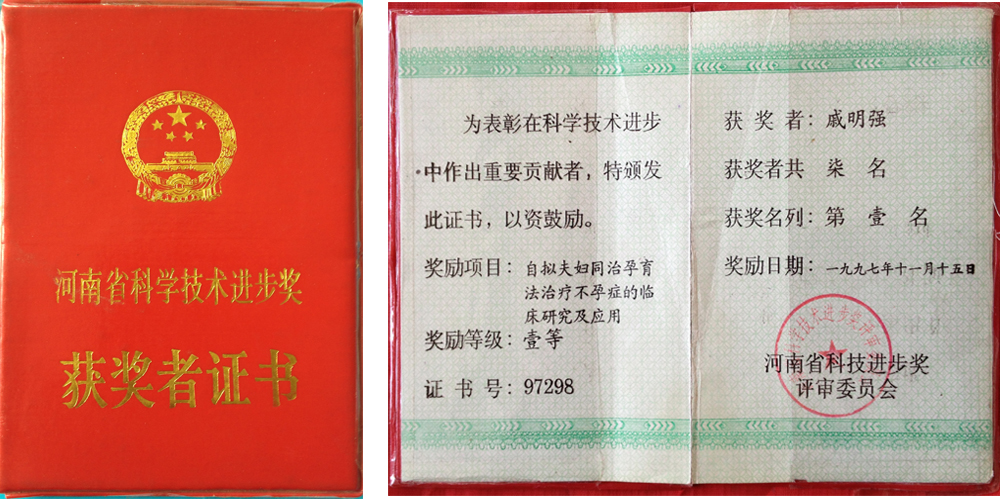 河南省科学技术进步奖
获奖者证书
为表彰在科学技术进步
中作出重要贡献者，特颁发
此证书，以资鼓励。
奖励项目：自拟夫妇同治孕育
法治疗不孕症的临
床研究及应用
奖励等级：壹等
证书号：97298
获奖者：戚明强
获奖者共 柒 名
获奖名列：第 壹 名
奖励日期：一九九七年十一月十五日
河南省科技进步奖
评审委员会